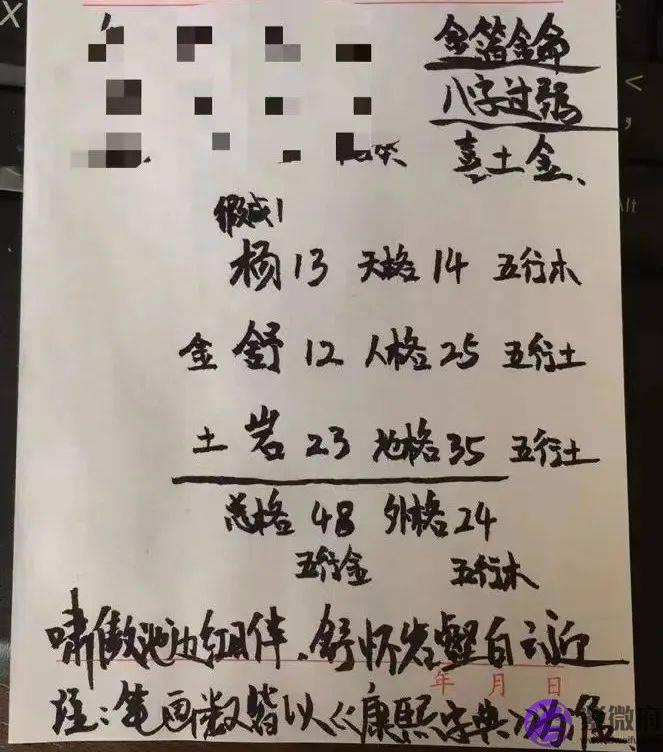 金箔金命
八字过弱
喜土金、
假成1
杨13 天格14 五行木
金 舒12 人格25 五行土
土 岩23 地格35 五行土
总格48 外格24
五行金 五行木
啸傲池边红日伴、舒怀岩壑白云近
年 月 日
注:笔画数皆以《康熙字典》为
微府